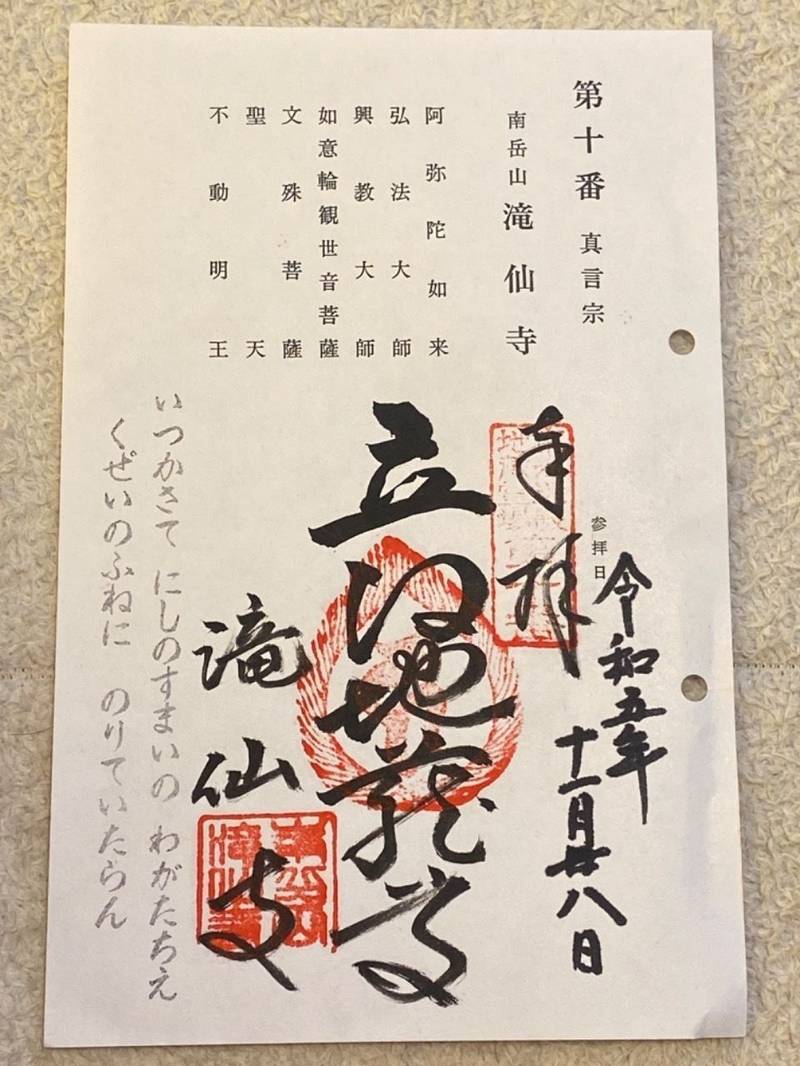 第十番 真言宗
南岳山 滝仙寺
阿弥陀如来
弘法大師
興教大師
如意輪観世音菩薩
文殊菩薩
聖天
不動明王
参拝日
令和五年
十一月廿八日
奉拝
立江地蔵尊
滝仙寺
いつかさて にしのすまいの わがたちえ
くぜいのふねに のりていたらん